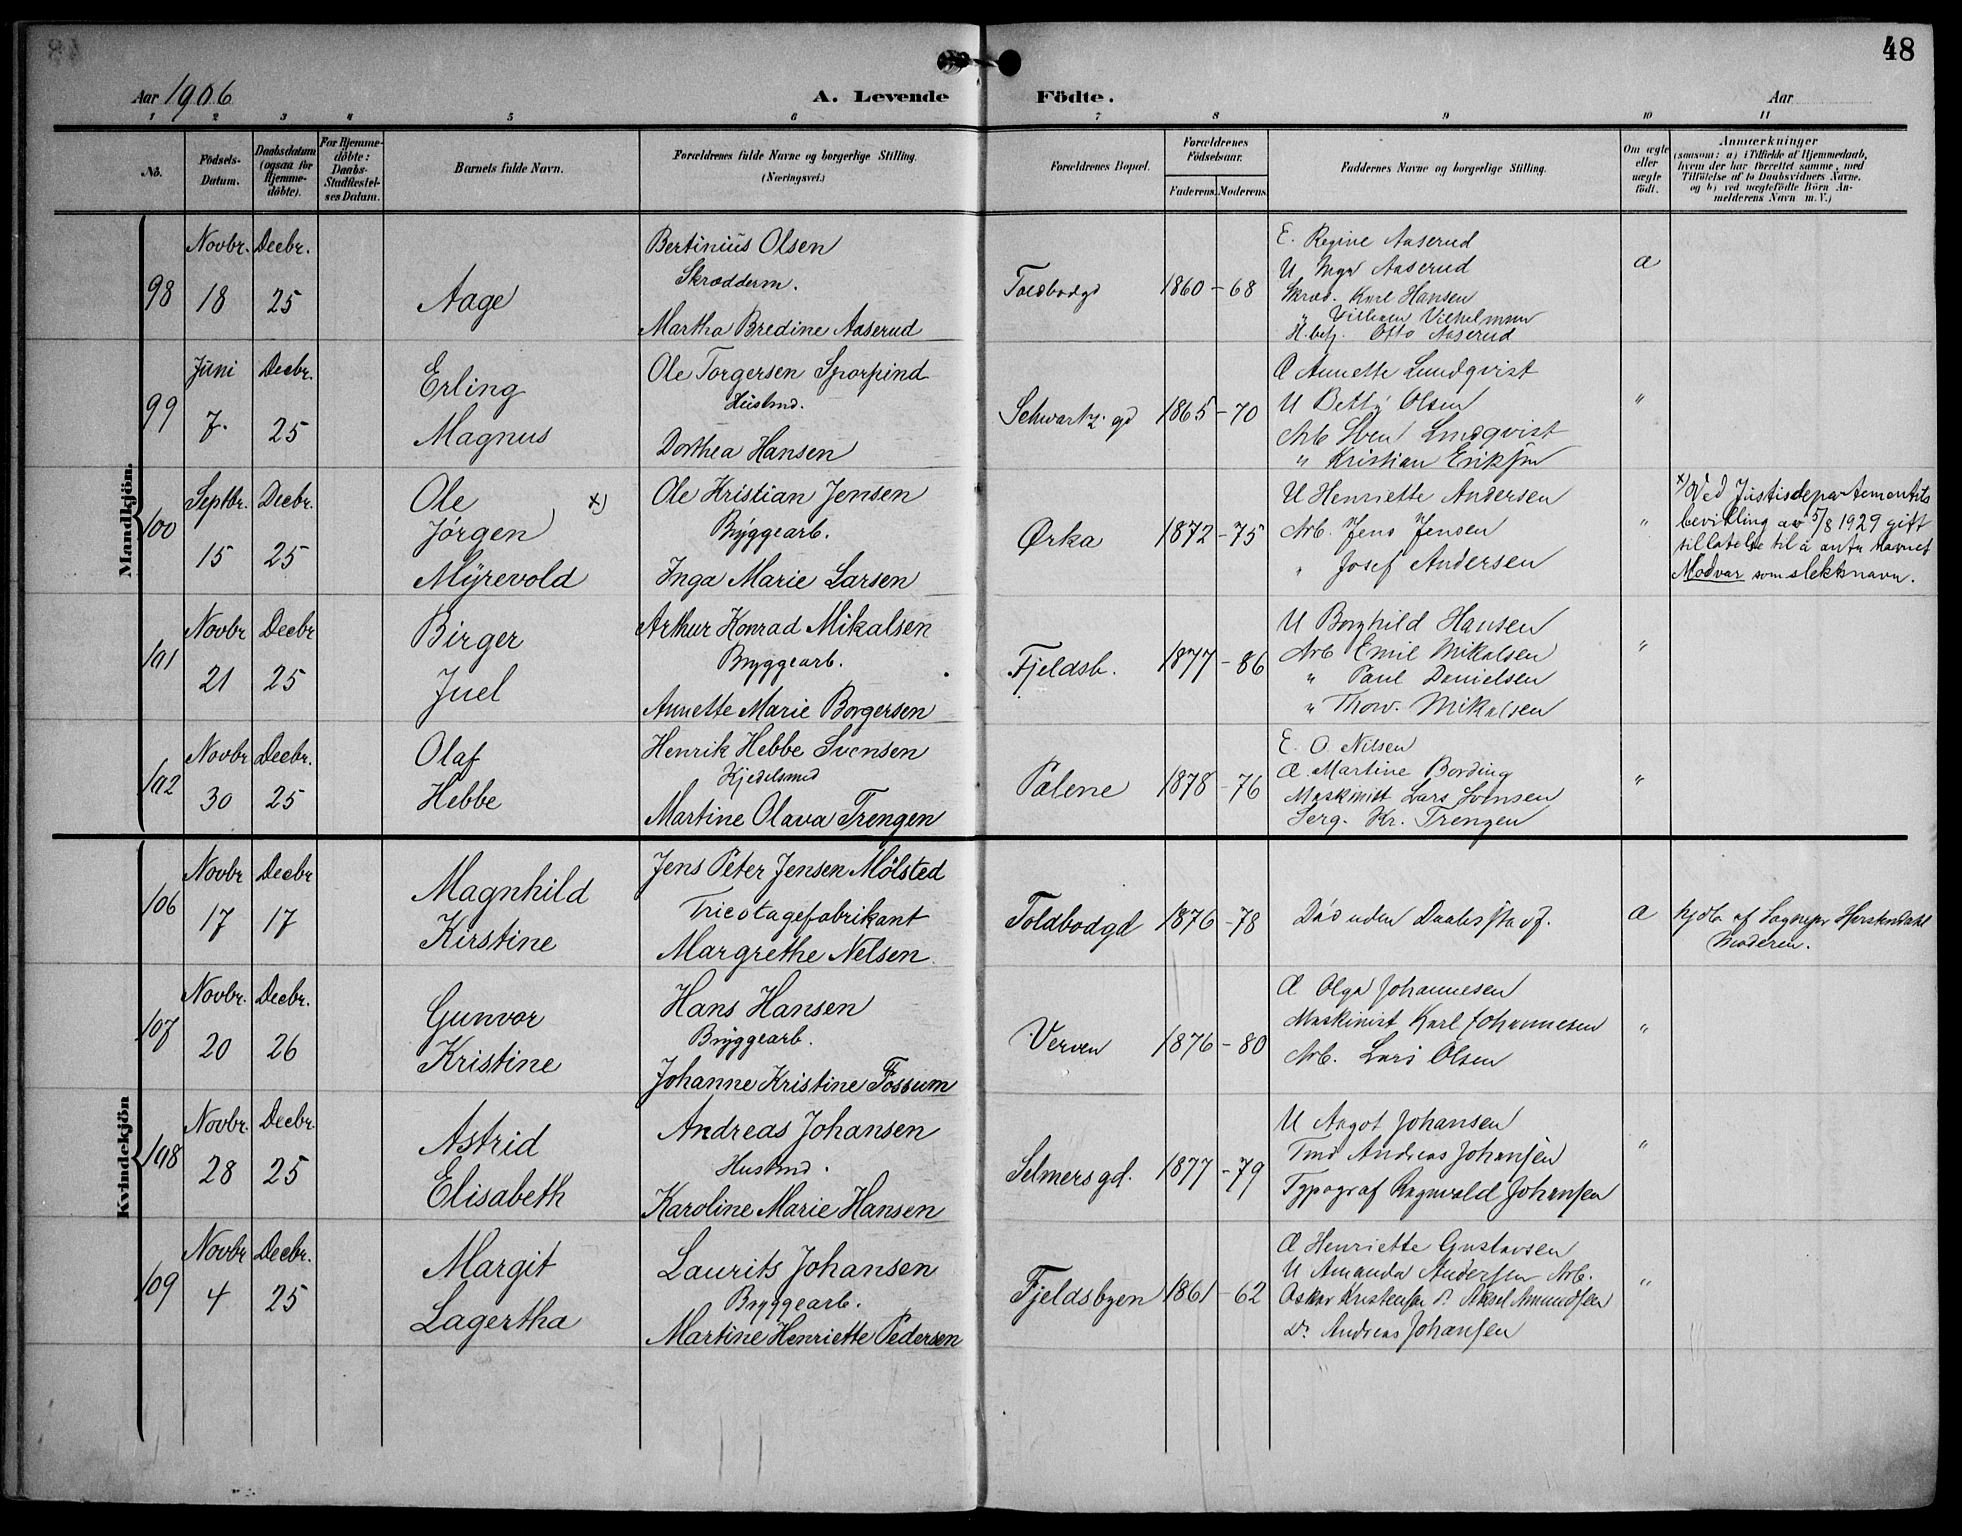 48
Aar 1906
A. Levende Födte.
Aar
1 2 3 4 5 6 7 8 9 10 11
No.
Födsels-Datum.
Daabsdatum (ogsaa for Hjemmedöbte).
For Hjemmedöbte: Daabs-Stadfæstelses Datum.
Barnets fulde Navn.
Forældrenes fulde Navne og borgerlige Stilling.
(Næringsvei.)
Forældrenes Bopæl.
Forældrenes Födselsaar.
Faderens. Moderens.
Faddernes Navne og borgerlige Stilling.
Om ægte eller uægte födt.
Anmærkninger
(saasom: a) i Tilfælde af Hjemmedaab,
hvem der har forrettet samme, med
Tilföielse af to Daabsvidners Navne.
og b) ved uægtefödte Börn An-
melderens Navn m. V.)
Mandkjön.
98
Novbr. 18
Decbr. 25
Aage
Bertinius Olsen
Skrædderm.
Martha Bredine Aaserud
Toldbodgd
1860 - 68
E. Regine Aaserud
U Inga Aaserud
Skræd. Karl Hansen
" Vilhelm
H.betj. Otto Aaserud
a
99
Juni 7.
Decbr. 25
Erling
Magnus
Ole Torgersen Sporpind
Husmd.
Dorthea Hansen
Schwartz gd
1865 - 70
Æ Annette Lundqvist
U Betty Olsen
Arb Sven Lundqvist
" Kristian Eriksen
"
100
Septbr. 15
Decbr. 25
Ole x)
Jørgen
Myrevold
Ole Kristian Jensen
Bryggearb.
Inga Marie Larsen
Ørka
1872 - 75
U Henriette Andersen
Arb. Jens Jensen
" Josef Andersen
"
x) Ved Justisdepartementets
bevilling av 5/8 1929 gitt
tillatelse til å anta navnet
Modvar som slektsnavn.
101
Novbr 21
Decbr 25
Birger
Juel
Arthur Konrad Mikalsen
Bryggearb.
Annette Marie Borgersen
Fjeldsb.
1877 - 86
U Borghild Hansen
Arb Emil Mikalsen
" Paul Danielsen
" Thorv. Mikalsen
"
102
Novbr 30
Decbr. 25
Olaf
Hebbe
Henrik Hebbe Svensen
Kjedelsmed
Martine Olava Trengen
Palene
1878 - 76
E. O. Nilsen
Æ. Martine Bording
Maskinist Lars Svensen
Serg. Kr. Trengen
"
Kvindekjön
106
Novbr 17
Decbr 17
Magnhild
Kirstine
Jens Peter Jensen Mølsted
Tricotagefabrikant
Margrethe Nelsen
Toldbodgd
1876 - 78
Død uden Daabsstadf.
a
hjdb. af Sognepr
Moderen.
107
Novbr. 20
Decbr. 26
Gunvor
Kristine
Hans Hansen
Bryggearb.
Johanne Kristine Fossum
Verven
1876 - 80
Æ Olga Johannesen
Maskinist Karl Johannesen
Arb. Lars Olsen
"
108
Novbr. 28
Decbr. 25
Astrid
Elisabeth
Andreas Johansen
Husmd.
Karoline Marie Hansen
Selmersgd.
1877 - 79
U Aagot Johansen
Tmd Andreas Johansen
Typograf Ragnvald Johansen
"
109
Novbr 4
Decbr. 25
Margit
Lagertha
Laurits Johansen
Bryggearb.
Martine Henriette Pedersen
Fjeldsbyen
1861 - 62
Æ Henriette Gustavsen
U Amanda Andersen Arb.
Oskar Kristensen Do Aksel Amundsen
Do Andreas Johansen
"